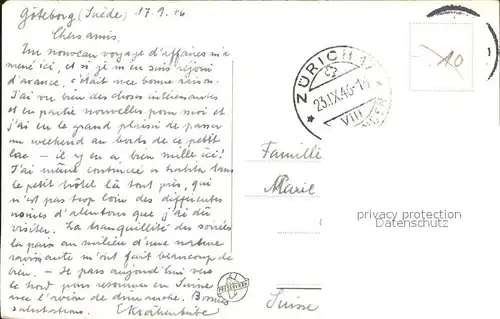 Göteborg (Suède) 17.9.46
Chers amis,
Un nouveau voyage d'affaires m'a
mené ici, et si je m'en suis réjoui
d'avance, c'était avec bonne raison.
J'ai vu bien des choses intéressantes
et en partie nouvelles pour moi et
j'ai eu le grand plaisir de passer
un weekend au bords de ce petit
lac – il y en a bien mille ici!
J'ai même continué a habiter dans
le petit hôtel là tout près, qui
n'est pas trop loin des différentes
usines d'alentours que j'ai dû
visiter. La tranquillité des soirées
la paix au milieu d'une nature
ravissante m'ont fait beaucoup de
bien. – Je pars aujourd'hui vers
le nord pour retourner en Suisse
avec l'avion de dimanche. Bonnes
salutations.
ZÜRICH
23.IX.46
VIII
10
Famille
Marie
Suisse
privacy protection
Oldthing Services